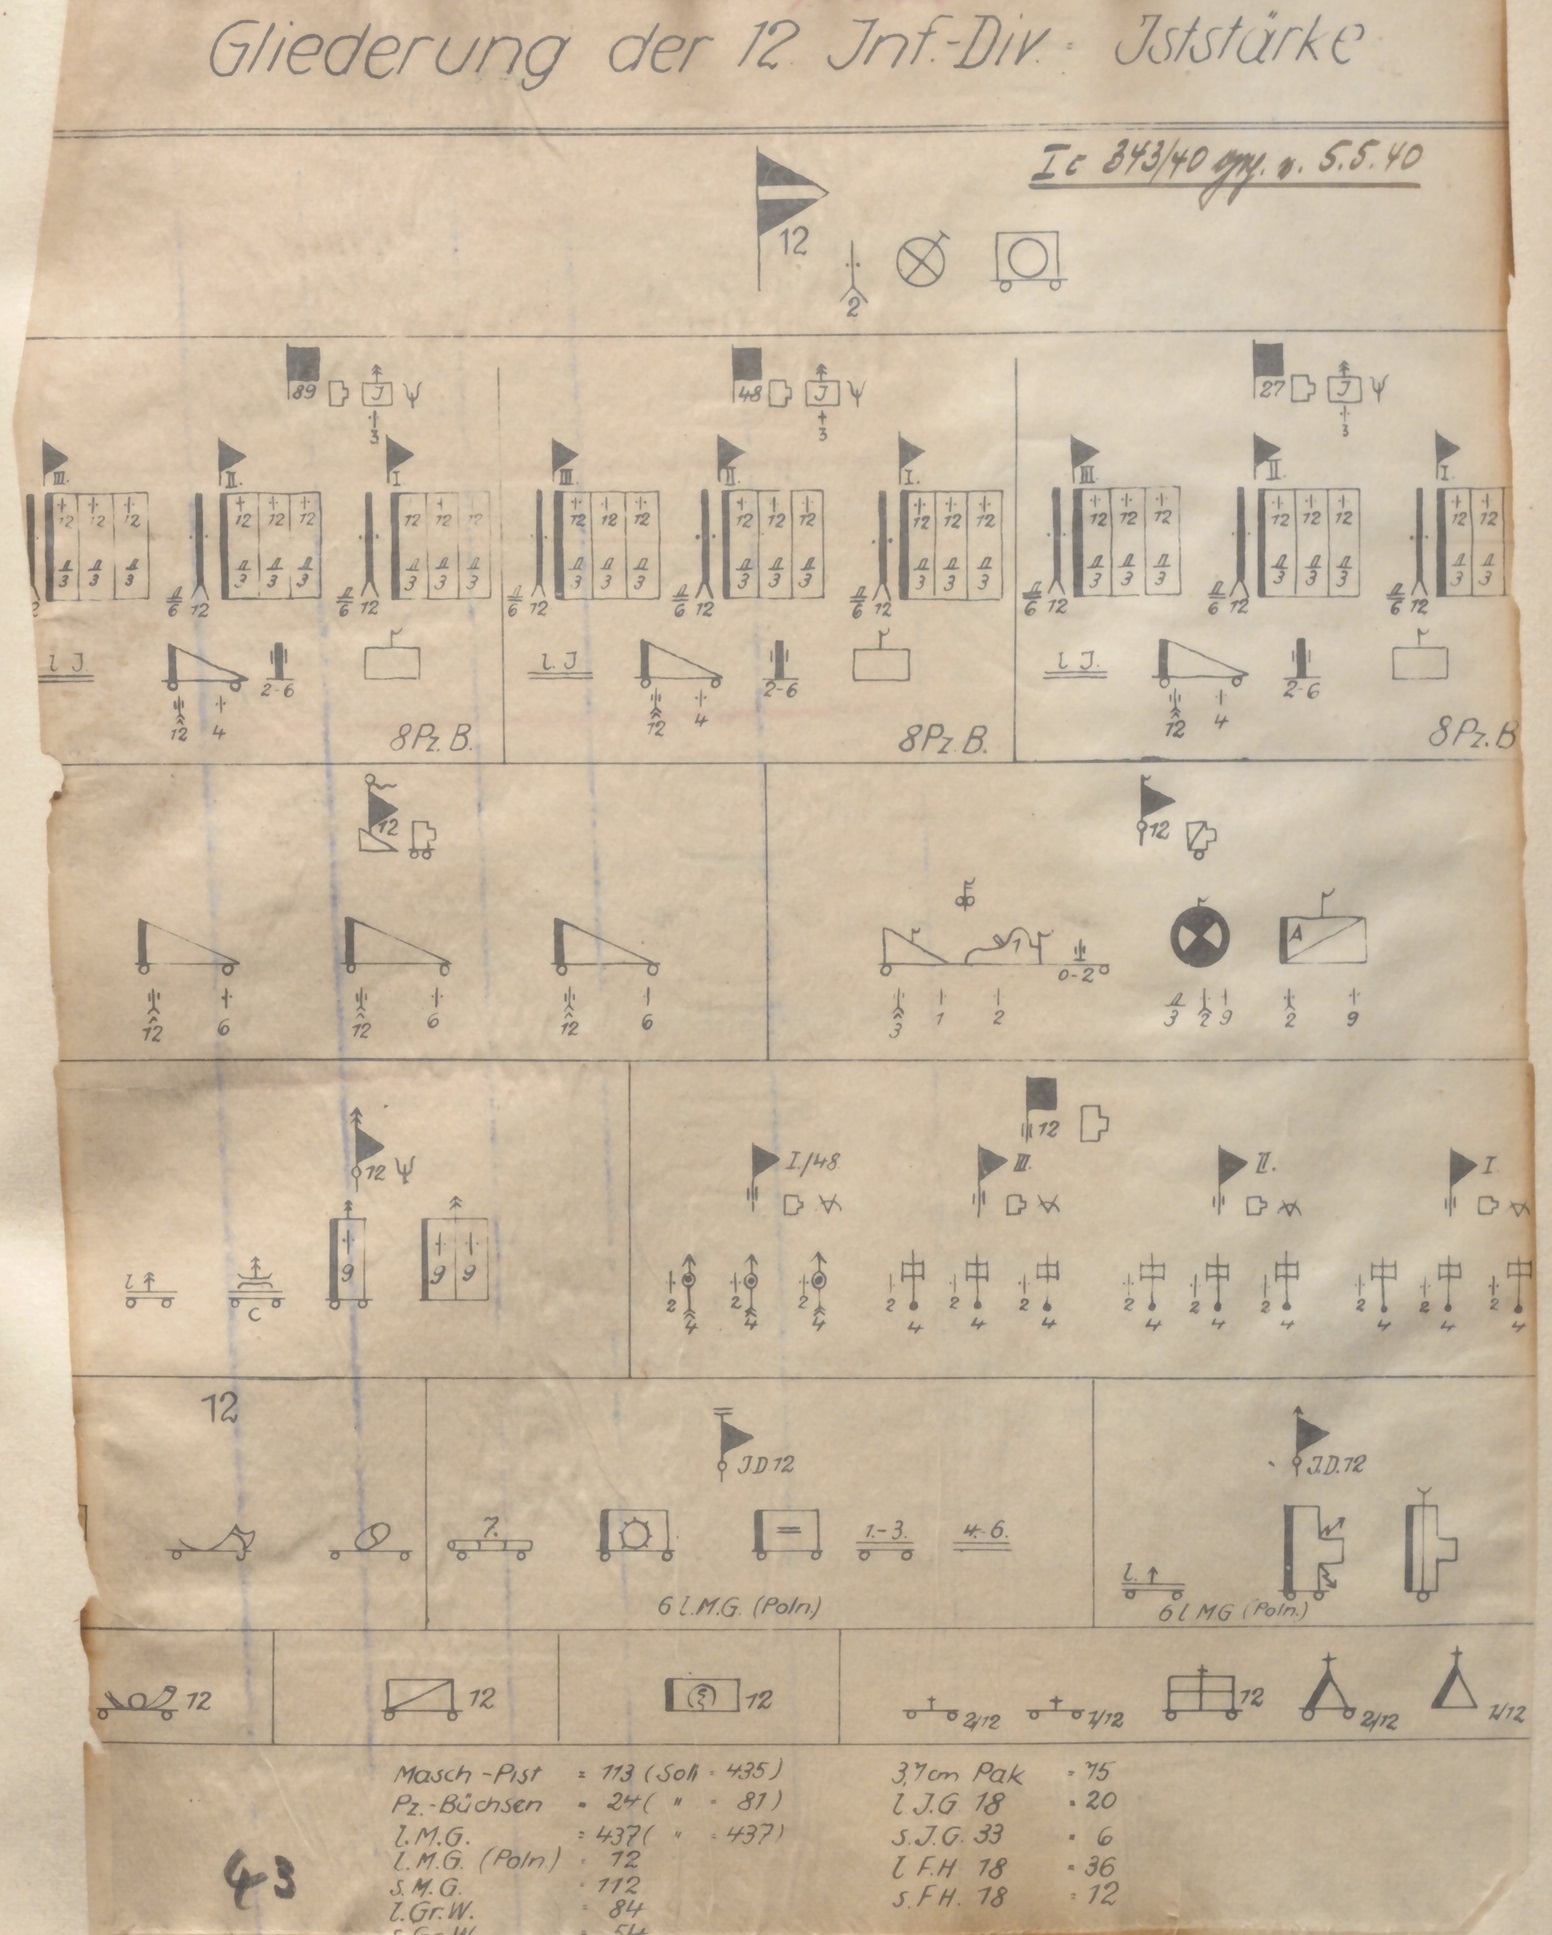 Gliederung der 12. Inf.-Div. Iststärke
Ic 343/40 v. 5.5.40
12
2
89 J 48 J 27 J
3 3 3
III. II. I III. II. I. III. II. I
12 12 12 12 12 12 12 12 12 12 12 12 12 12 12 12 12 12 12 12 12 12 12 12 12 12
3 3 3 3 3 3 3 3 3 3 3 3 3 3 3 3 3 3 3 3 3 3 3 3 3 3
2 6 12 6 12 6 12 6 12 6 12 6 12 6 12 6 12
l J. 2-6 l. J 2-6 l J. 2-6
12 4 12 4 12 4
8 Pz. B. 8 Pz. B. 8 Pz. B
12 12
A
0-2
12 6 12 6 12 6 3 1 2 3 2 9 2 9
12
12 I./48 III. II. I
9 9 9
l C
2 2 2 2 2 2 2 2 2 2 2 2
4 4 4 4 4 4 4 4 4 4 4 4
12
J D 12 J.D. 12
7. 1.-3. 4.-6.
l.
6 l.M.G. (Poln.) 6 l MG (Poln.)
12 12 12 2/12 1/12 12 2/12 1/12
Masch-Pist = 113 (Soll = 435)
Pz.-Büchsen = 24 ( " = 81)
l.M.G. = 437 ( " = 437)
l.M.G. (Poln.) = 12
s.M.G. = 112
l.Gr.W. = 84
s.Gr.W. = 54
3,7 cm Pak = 75
l J.G 18 = 20
s.J.G. 33 = 6
l F.H 18 = 36
s.F.H. 18 = 12
43